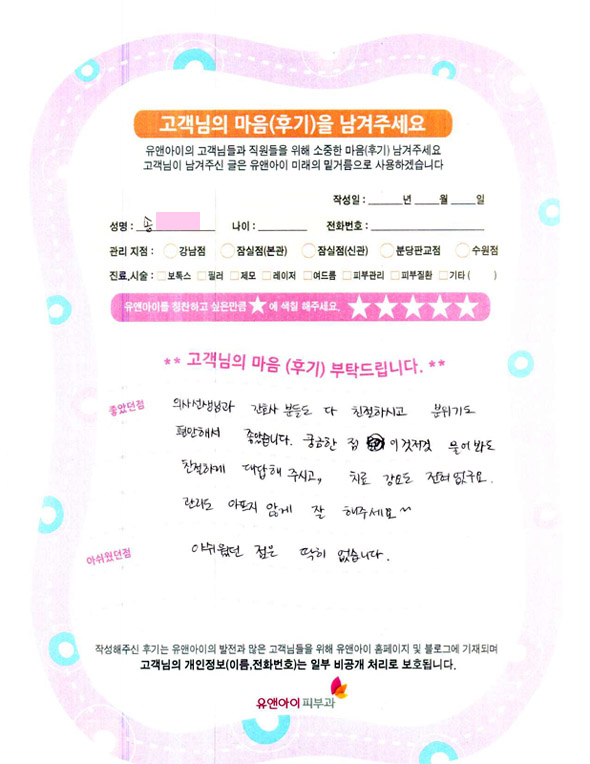 고객님의 마음(후기)을 남겨주세요
유앤아이의 고객님들과 직원들을 위해 소중한 마음(후기) 남겨주세요
고객님이 남겨주신 글은 유앤아이 미래의 밑거름으로 사용하겠습니다
작성일 : ______년 ____월 ____일
성명 : 송 나이 : ________ 전화번호 : ________________
관리 지점 : 강남점 잠실점(본관) 잠실점(신관) 분당판교점 수원점
진료,시술 : 보톡스 필러 제모 레이저 여드름 피부관리 피부질환 기타 ( )
유앤아이를 칭찬하고 싶은만큼 ★에 색칠 해주세요. ★★★★★
** 고객님의 마음 (후기) 부탁드립니다. **
좋았던점 의사선생님과 간호사 분들도 다 친절하시고 분위기도
편안해서 좋았습니다. 궁금한 점 이것저것 물어봐도
친절하게 대답해 주시고, 치료 강요도 전혀 없구요.
관리도 아프지 않게 잘 해주세요~
아쉬웠던점 아쉬웠던 점은 딱히 없습니다.
작성해주신 후기는 유앤아이의 발전과 많은 고객님들을 위해 유앤아이 홈페이지 및 블로그에 기재되며
고객님의 개인정보(이름,전화번호)는 일부 비공개 처리로 보호됩니다.
유앤아이 피부과